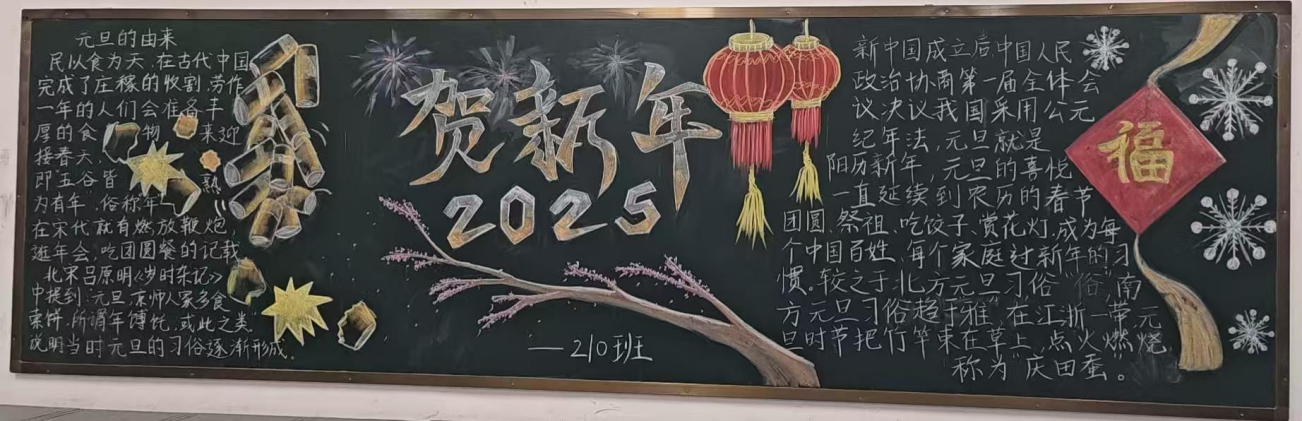 元旦的由来
民以食为天,在古代中国
完成了庄稼的收割,劳作
一年的人们会准备丰
厚的食物来迎
接春天,
即五谷皆熟
为有年",俗称年
在宋代就有燃放鞭炮,
逛年会,吃团圆餐的记载
北宋吕原明《岁时杂记》
中提到:元旦京师人家多食
索饼,所谓年馎饦,或此之类
说明当时元旦的习俗逐渐形成
贺新年
2025
—210班
新中国成立后中国人民
政治协商第一届全体会
议决议我国采用公元
纪年法,元旦就是
阳历新年,元旦的喜悦
一直延续到农历的春节
团圆、祭祖、吃饺子、赏花灯,成为每
个中国百姓,每个家庭过新年的习
惯。较之于北方元旦习俗 俗,南
方元旦习俗趋于雅"在江浙一带,元
旦时节把竹竿束在草上,点火燃烧,
称为"庆田蚕。
福